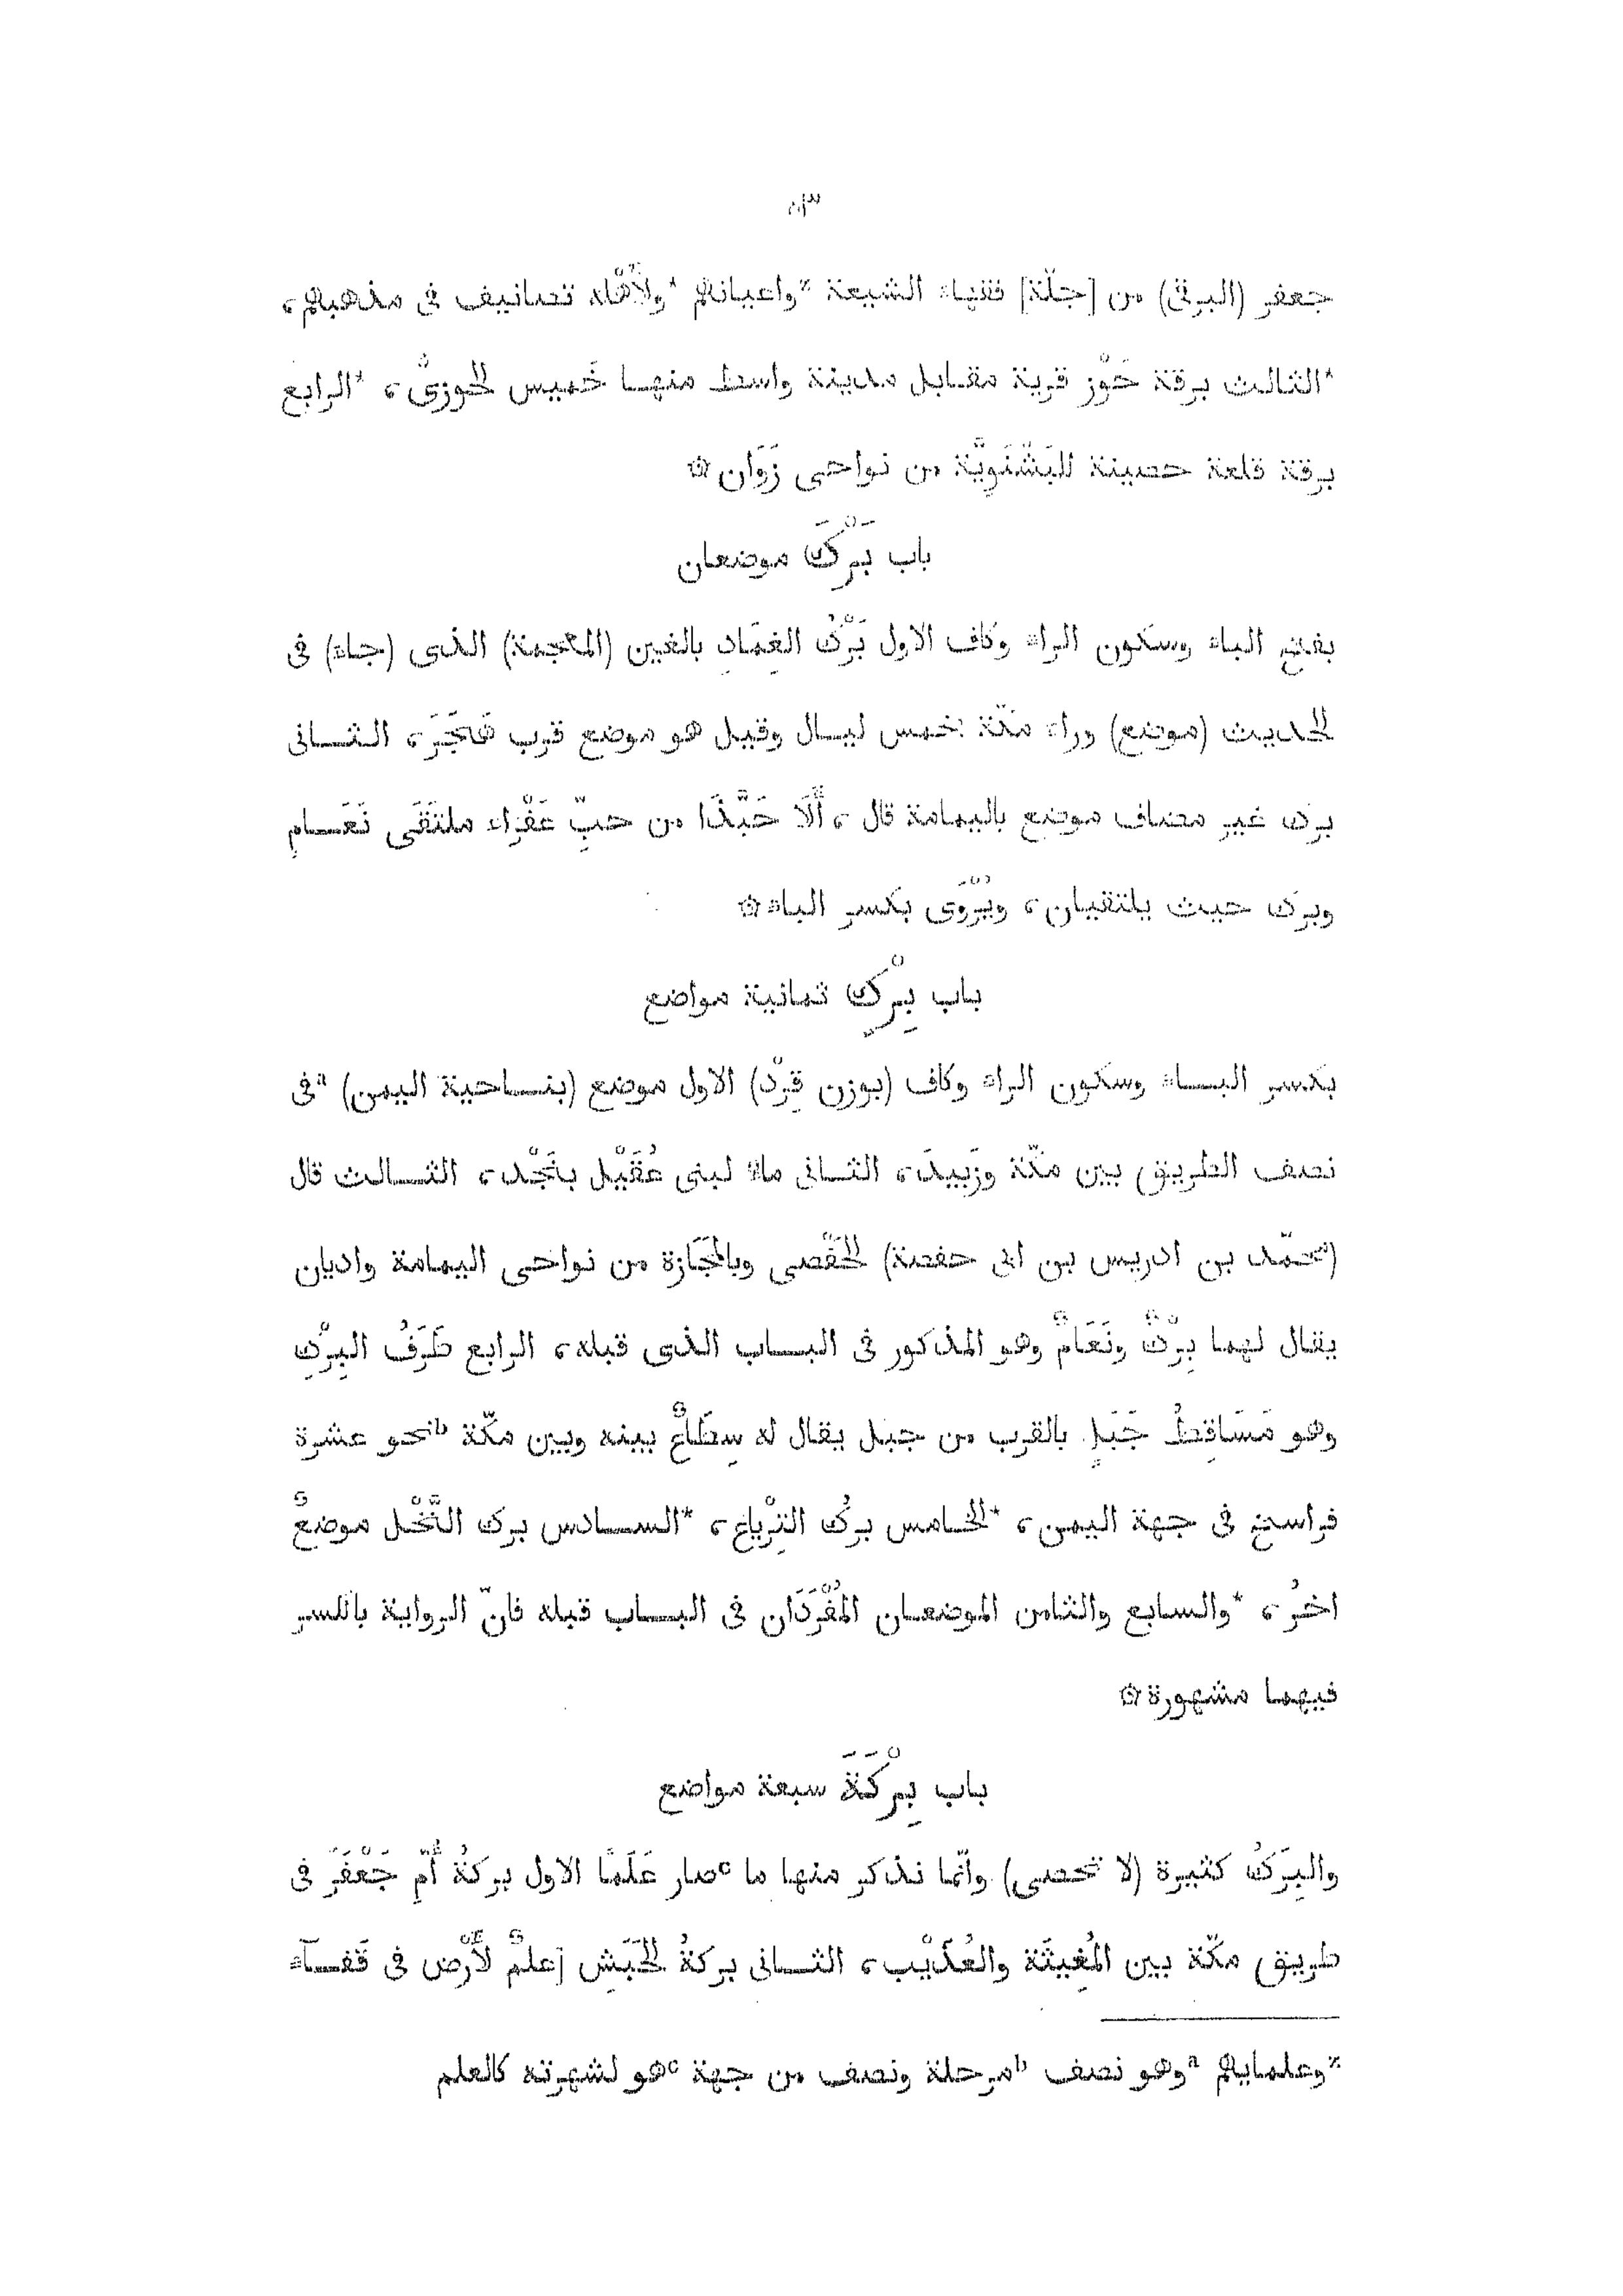 جعفر (البرقى) من [جلّة] فقهاء الشيعة zواعيانهم *ولأَهْله تصانيف فى مذهبهم،
*الثالث برقة حَوْز قرية مقابل مدينة واسط منهـا خَميس الحَوزىُّ، *الرابع
برقة قلعة حصينة للبَشْنَوِيَّة من نواحى زَوَان ۞
باب بَرْكَ موضعان
بفتح الباء وسكون الراء وكاف الاول بَرْكُ الغِمَادِ بالغين (المعجمة) الذى (جاء) فى
الحديث (موضع) وراء مكّة بخمس ليـال وقيل هو موضع قرب هَجَرَ، الثـانى
برك غير مضاف موضع باليمامة قال، أَلَا حَبَّذَا من حبِّ عَفْرَاء ملتَقَى نَعَـامٍ
وبرك حيث يلتقيان، ويُرْوَى بكسر الباء ۞
باب بِرْكٍ ثمانية مواضع
بكسر البـاء وسكون الراء وكاف (بوزن قِرْد) الاول موضع (بنـاحية اليمن) aفى
نصف الطريق بين مكّة وزَبيدَ، الثـانى ماء لبنى عُقَيْل بنَجْد، الثـالث قال
(محمّد بن ادريس بن ابى حفصة) الحَفْصى وبالمَجَازة من نواحى اليمامة واديان
يقال لهما بِرْكٌ ونَعَامٌ وهو المذكور فى البـاب الذى قبله، الرابع طَرَفُ البِرْكِ
وهو مَسَاقِطُ جَبَلٍ بالقرب من جبل يقال له سِطَاعٌ بينه وبين مكّة bنحو عشرة
فراسخ فى جهة اليمن، *الخـامس بركُ التِرْياع، *السـادس برك النَّخْل موضعٌ
اخرُ، *والسابع والثامن الموضعـان المُفْرَدَان فى البـاب قبله فانّ الرواية بالكسر
فيهما مشهورة ۞
باب بِرْكَةَ سبعة مواضع
والبِرَكُ كثيرة (لا تحصى) وانّما نذكر منها ما cصار عَلَمًا الاول بركةُ أُمِّ جَعْفَرَ فى
طريق مكّة بين المُغِيثَة والعُذَيْب، الثـانى بركةُ الحَبَشِ [علمٌ لأَرْض فى قَفـآء
zوعلمايهم aوهو نصف bمرحلة ونصف من جهة cهو لشهرته كالعلم